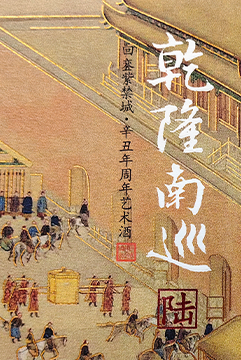 乾隆南巡
回襄紫禁城·辛丑年周年艺术酒
陆